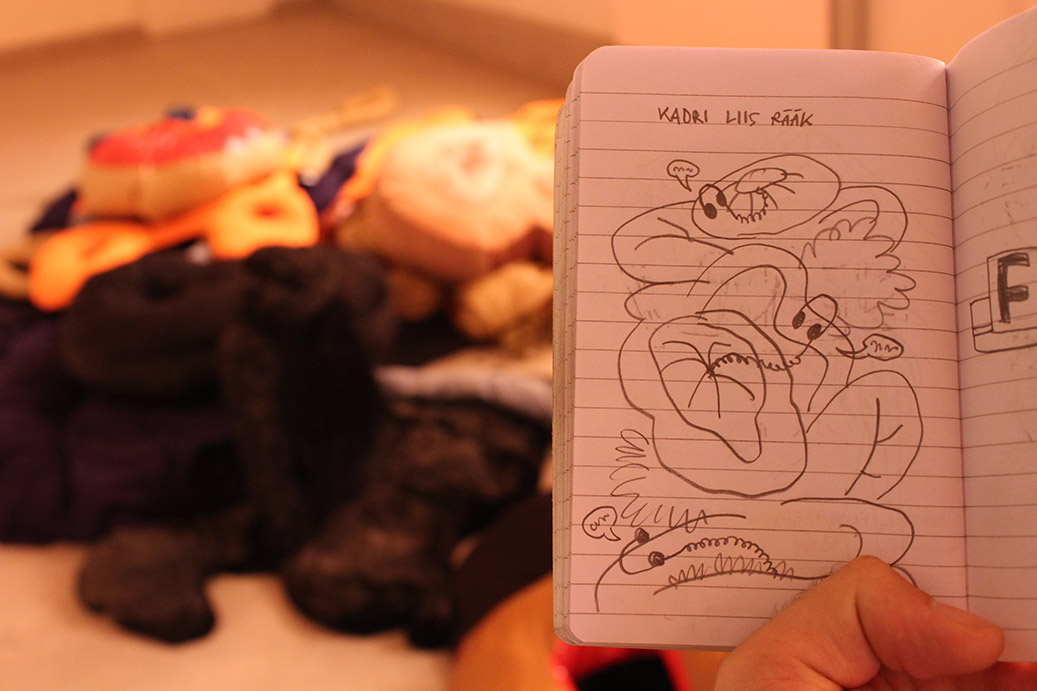 KADRI LIIS RÄÄK
F